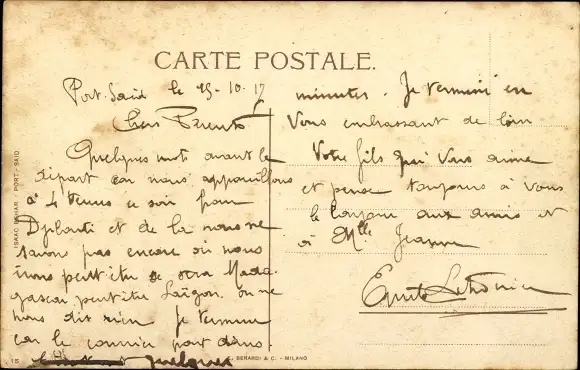 CARTE POSTALE.
Port-Saïd le 15-10-17
Chers Parents
Quelques mots avant le
départ car nous appareillons
à 4 heures ce soir pour
Djibouti et de la nous ne
savons pas encore où nous
irons peut être ce sera Mada
gascar peut être Saïgon. on ne
nous dit rien Je termine
car le courrier part dans
quelques
minutes. Je termine en
Vous embrassant de loin
Votre fils qui Vous aime
et pense toujours à Vous
le bonjour aux amis et
à Mlle Jeanne
ISAAC BEHAR - PORT-SAID
15
BERARDI & C. - MILANO